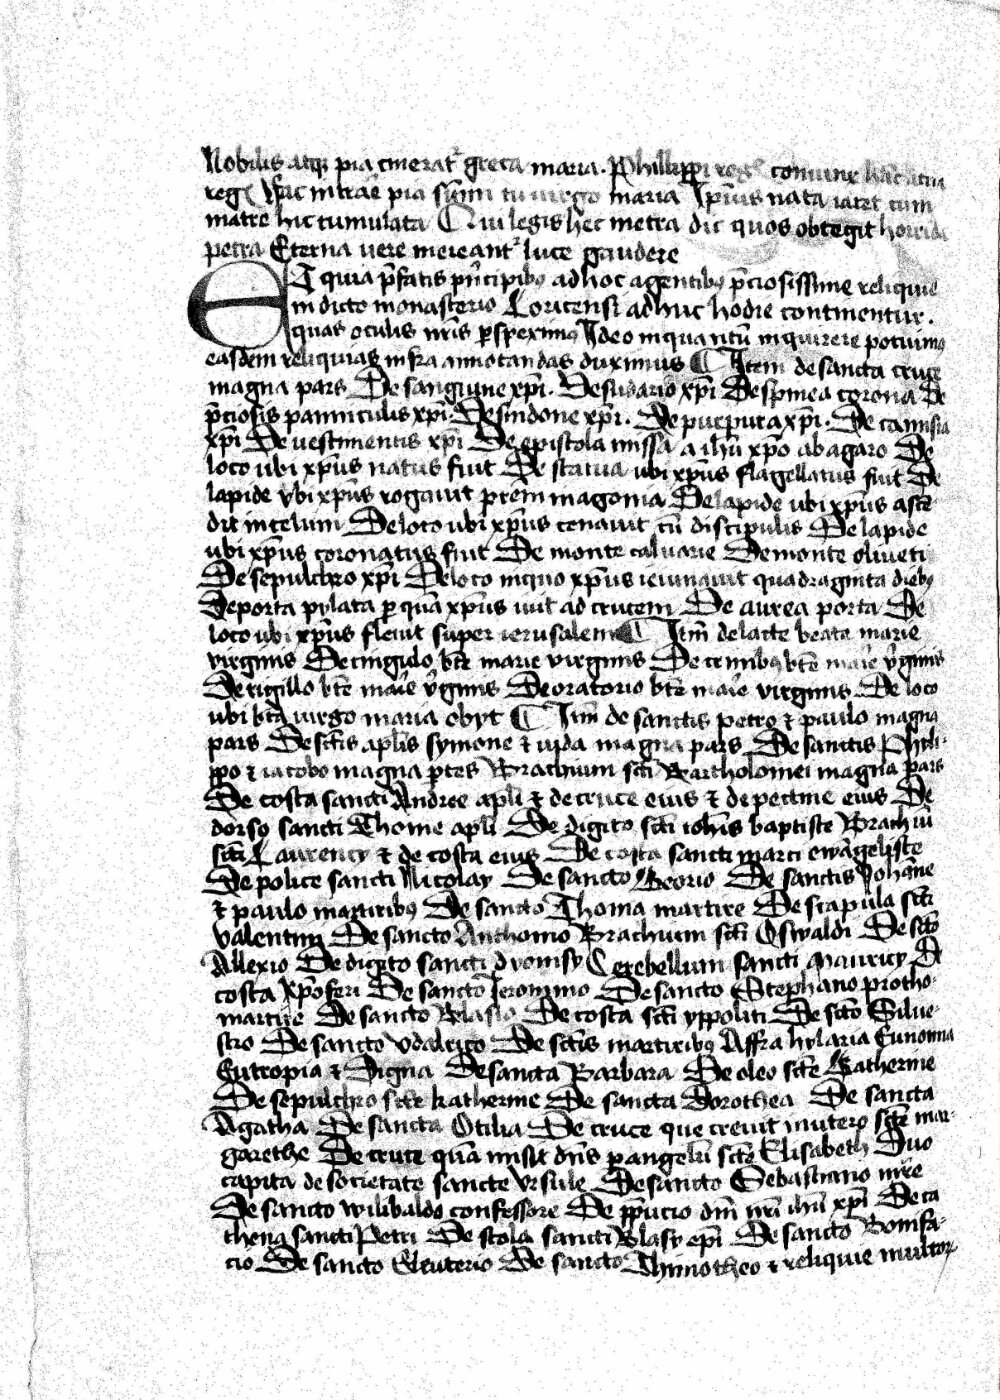 Nobilis atq; pia cinerat᷑ greca maria. Phillippi reg᷑
reg᷑ fac intrare pia tu virgo maria Ip̄ius nata iacet cum
matre hic tumulata Qui legis hec metra dic quos obtegit horrida
petra Eterna vere mereant᷑ luce gaudere
ET quia p̄fatis p̄ncipibꝰ ad hoc agentibꝰ p̄ciosissime reliquie
in dicto monasterio Loricensi adhuc hodie continentur.
quas oculis nr̄is ꝑspeximꝰ Ideo inquantū inquirere potuimꝰ
easdem reliquias infra annotandas duximus ¶ Item de sancta cruce
magna pars De sanguine xp̄i. De sudario xp̄i De spinea corona De
p̄ciosis panniculis xp̄i. De sindone xp̄i. De purpura xp̄i. De camisia
xp̄i De vestimentis xp̄i De epistola missa a ih̄u xp̄o abagaro De
loco ubi xp̄us natus fuit De statua ubi xp̄us flagellatus fuit De
lapide vbi xp̄us rogauit p̄rem in agonia De lapide ubi xp̄us ascē
dit in celum De loco ubi xp̄us cenauit cū discipulis De lapide
ubi xp̄us coronatus fuit De monte caluarie De monte oliueti
De sepulchro xp̄i De loco in quo xp̄us ieiunauit quadraginta diebꝰ
De porta pylata ꝑ quā xp̄us iuit ad crucem De aurea porta De
loco ubi xp̄us fleuit super ierusalem ¶ Itm̄ de lacte beate marie
virginis De cingulo bt̄e marie virginis De crinibꝰ bt̄e mar̄ie v̄ginis
De rigillo bt̄e mar̄ie v̄ginis De oratorio bt̄e mar̄ie virginis De loco
ubi bt̄a virgo maria obyt ¶ Itm̄ de sanctis petro ⁊ paulo magna
pars De sc̄tis apl̄is symone ⁊ iuda magna pars De sanctis Phili-
ppo ⁊ iacobo magna p̄tes Brachium sc̄ti Bartholomei magna pars
De costa sancti Andree apl̄i ⁊ de cruce eius ⁊ de pectine eius De
dorso sancti Thome apl̄i De digito sc̄ti ioh̄is baptiste Brachiū
sc̄ti Laurency ⁊ de costa eius De costa sancti marci ewāgeliste
De police sancti Nicolay De sancto Georio De sanctis Johāne
⁊ paulo martiribꝰ De sancto Thoma martire De scapula sc̄ti
valentini De sancto Anthonio Brachium sc̄ti Oswaldi De sc̄to
Allexio De digito sancti dyonisy Cerebellum sancti Mauricy De
costa xp̄oferi De sancto Ieronimo De sancto Stephano protho-
martire De sancto Blasio De costa sc̄ti yppoliti De sc̄to Silue-
stro De sancto vdalrico De sc̄tis martiribꝰ Affra hylaria Eunomia
Eutropia ⁊ Digna De sancta Barbara De oleo sc̄te Katherine
De sepulchro sc̄te katherine De sancta Dorothea De sancta
Agatha De sancta Otilia De cruce que creuit in utero sc̄te mar-
garethe De cruce quā misit dn̄s ꝑ angelū sc̄te Elisabeth Duo
capita de societate sancte vrsule De sancto Sebastiano mr̄e
De sancto wilibaldo confessore De p̄pucio dn̄i nr̄i ih̄u xp̄i De ca
thena sancti Petri De stola sancti Blasy ep̄i De sancto Bonifa-
cio De sancto Eleuterio De sancto Thimotheo ⁊ reliquie multoꝝ